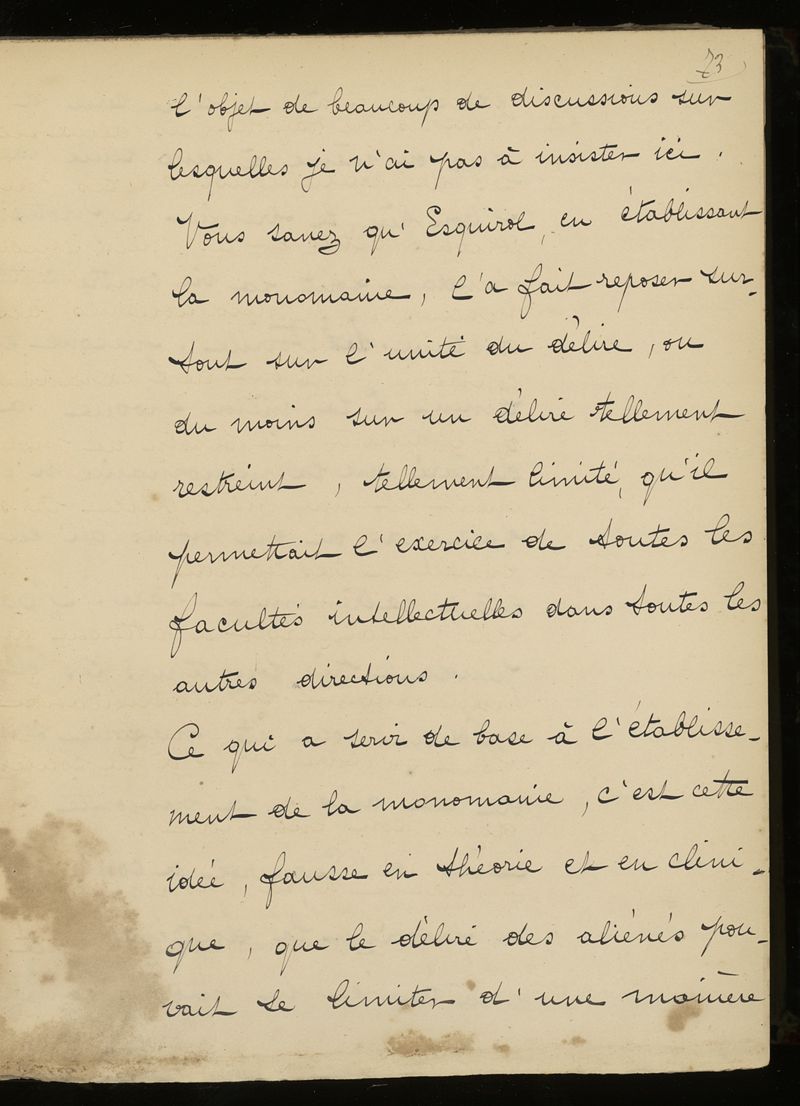 73
l'objet de beaucoup de discussions sur
lesquelles je n'ai pas à insister ici.
Vous savez qu'Esquirol, en établissant
la monomanie, l'a fait reposer sur-
tout sur l'unité du délire, ou
du moins sur un délire tellement
restreint, tellement limité, qu'il
permettait l'exercice de toutes les
facultés intellectuelles dans toutes les
autres directions.
Ce qui a servi de base à l'établisse-
ment de la monomanie, c'est cette
idée, fausse en théorie et en clini-
que, que le délire des aliénés pou-
vait se limiter d'une manière